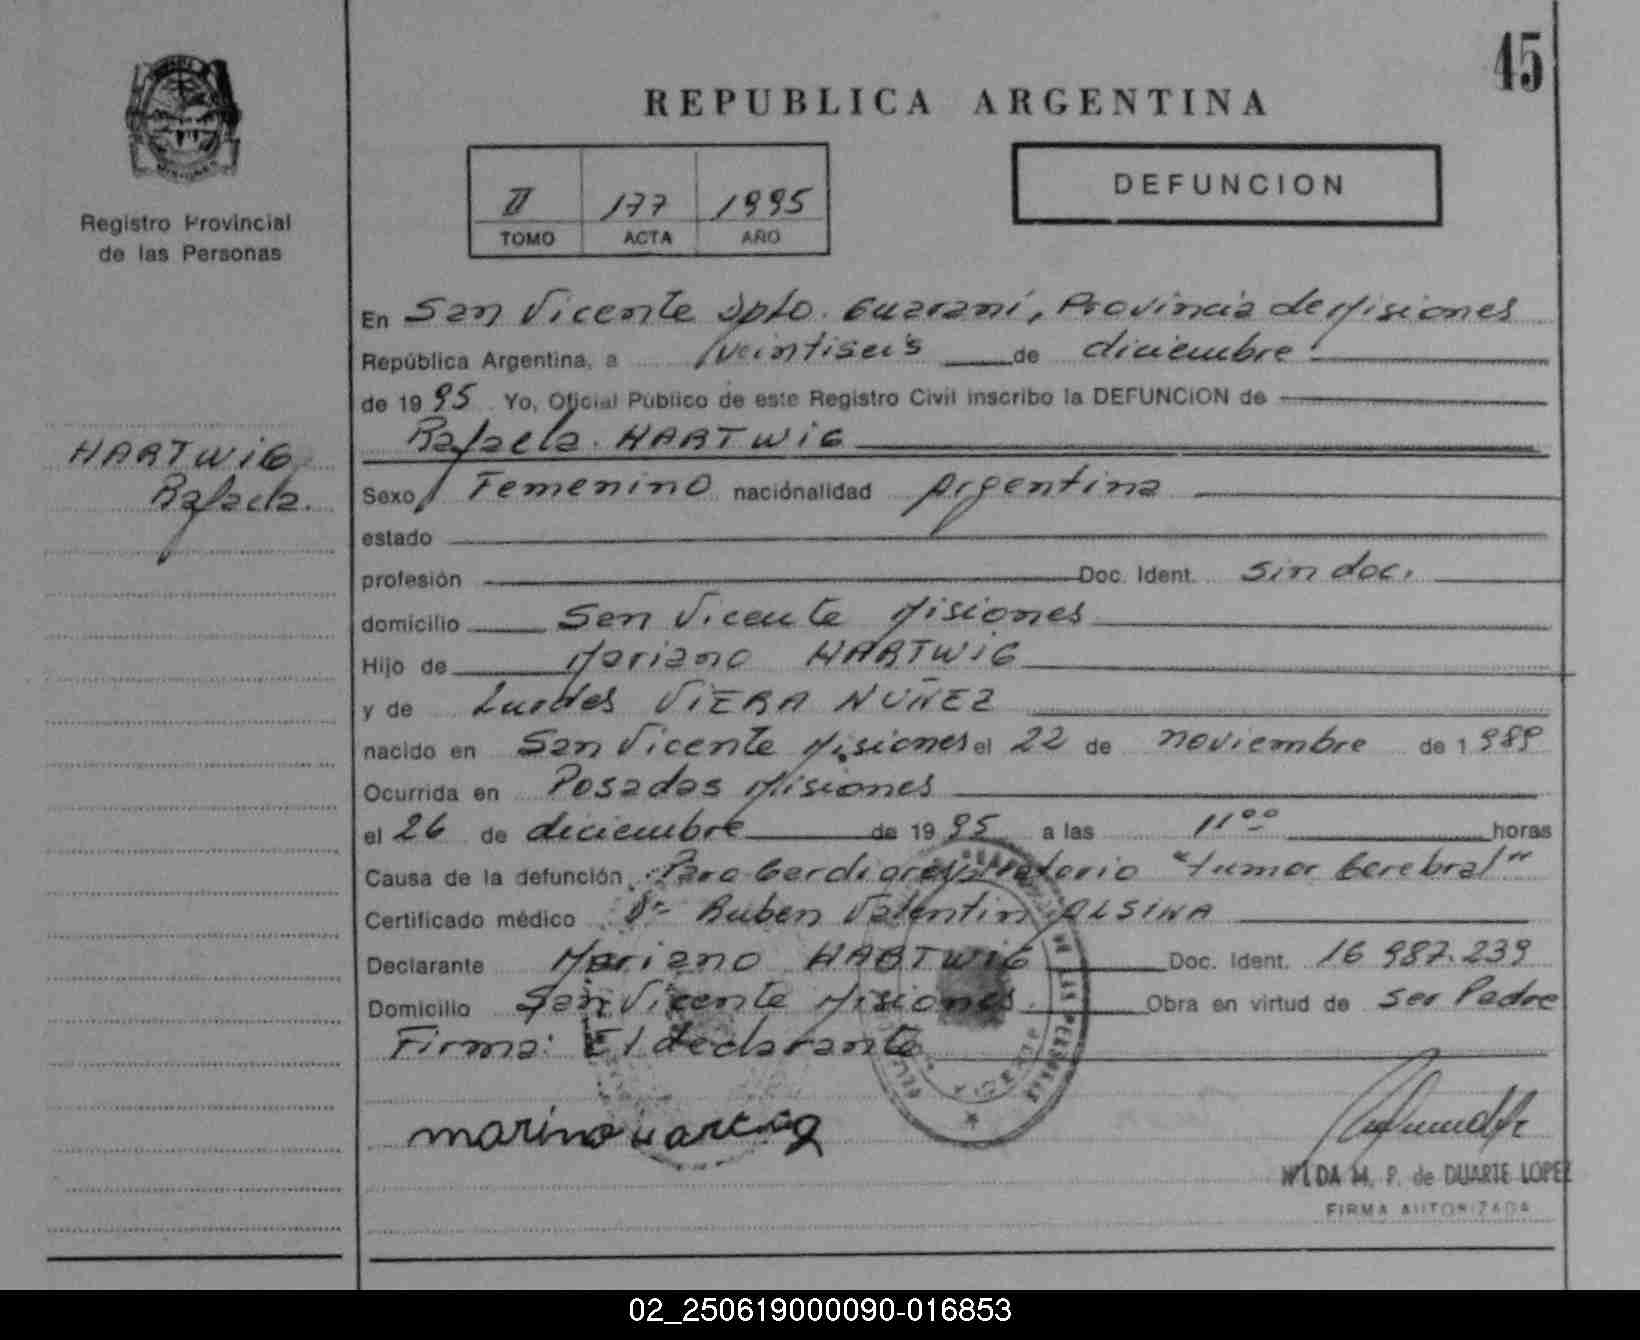 45
REPUBLICA ARGENTINA
II 177 1995
TOMO ACTA AÑO
DEFUNCION
Registro Provincial
de las Personas
HARTWIG
Rafaela.
En San Vicente Dpto. Guaraní, Provincia de Misiones
República Argentina, a veintiseis de diciembre
de 1995 Yo, Oficial Público de este Registro Civil inscribo la DEFUNCION de
Rafaela. HARTWIG
Sexo Femenino naciónalidad Argentina
estado
profesión Doc. Ident. sin doc.
domicilio San Vicente Misiones
Hijo de Mariano HARTWIG
y de Lurdes VIERA NUÑEZ
nacido en San Vicente Misiones el 22 de noviembre de 1989
Ocurrida en Posadas Misiones
el 26 de diciembre de 1995 a las 11ºº horas
Causa de la defunción Paro Cardiorespiratorio "tumor Cerebral"
Certificado médico Dr Ruben Valentin ALSINA
Declarante Mariano HARTWIG Doc. Ident. 16 987.239
Domicilio San Vicente Misiones. Obra en virtud de ser Padre
Firma: El declarante
DE LAS PERSONAS
marino
NILDA M. P. de DUARTE LOPEZ
FIRMA AUTORIZADA
02_250619000090-016853